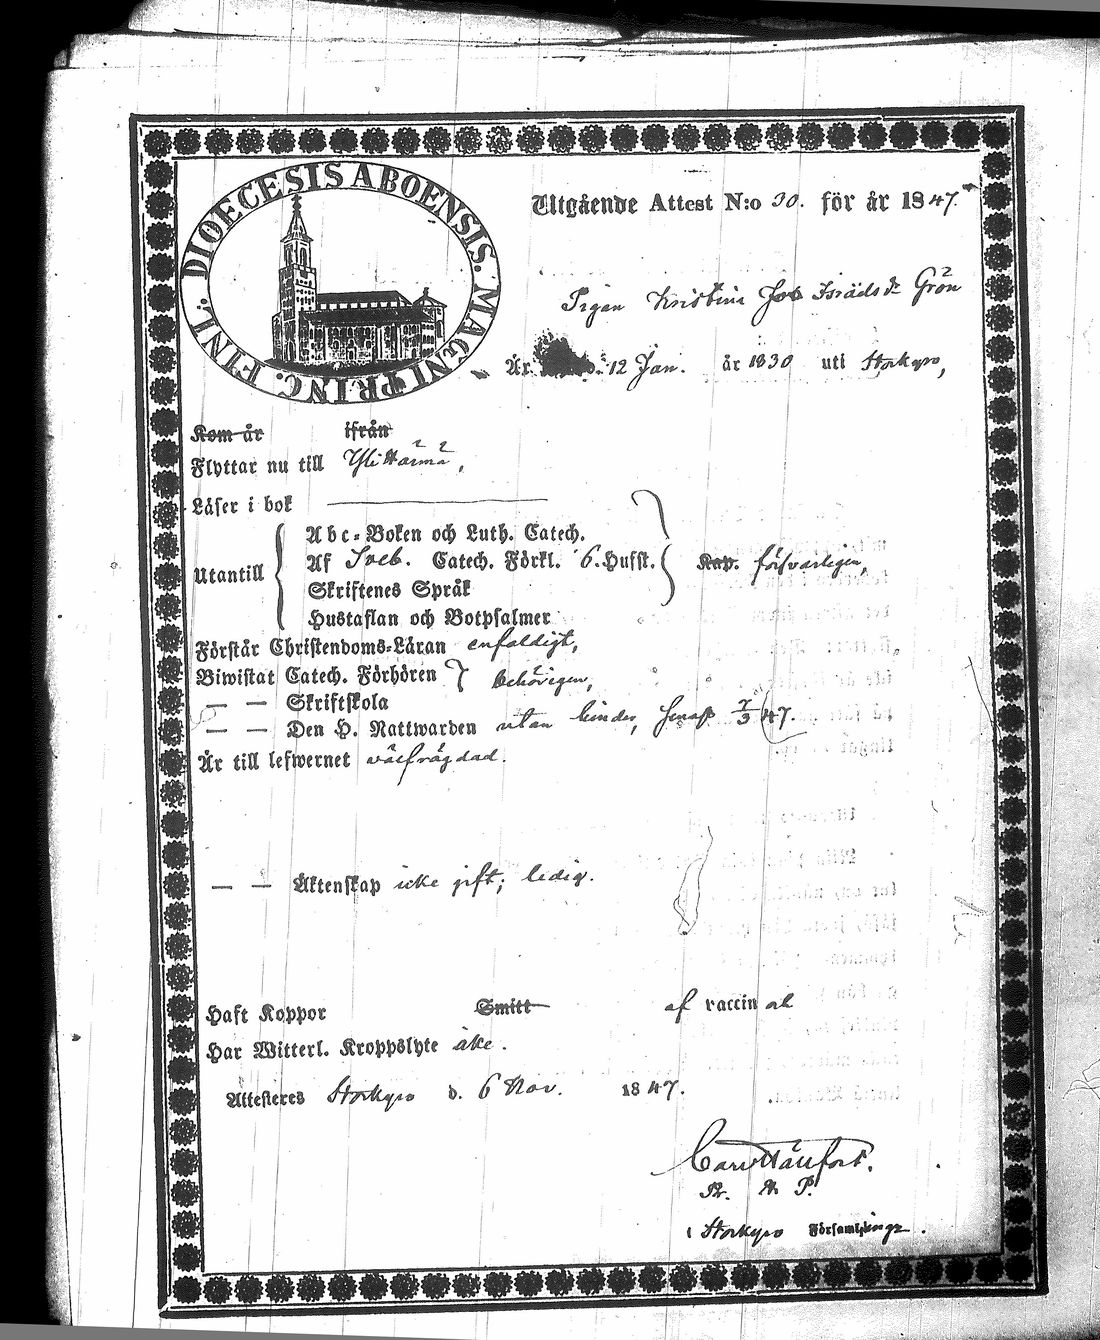 DIOECESIS ABOENSIS. MAGNI PRINC. FINL.
Utgående Attest N:o 30. för år 1847.
Pigan Kristina Israelsdr Grön
Är 12 Jan. år 1830 uti Storkyro,
Kom år ifrån
Flyttar nu till Ylihärmä,
Läser i bok
Utantill
Abc-Boken och Luth. Catech.
Af Sveb. Catech. Förkl. 6. Hufst. Kap. försvarligen,
Skriftenes Språk
Hustaflan och Botpsalmer
Förstår Christendoms-Läran enfaldigt,
Biwistat Catech. Förhören behörigen,
— — Skriftskola
— — Den H. Nattwarden utan hinder, senast 7/3 47.
Är till lefwernet välfrägdad.
— — Äktenskap icke gift, ledig.
Haft Koppor Smitt af vaccin
Har Witterl. Kroppslyte
Attesteres Storkyro d. 6 Nov. 1847.
Carl
P.
i Storkyro Församling